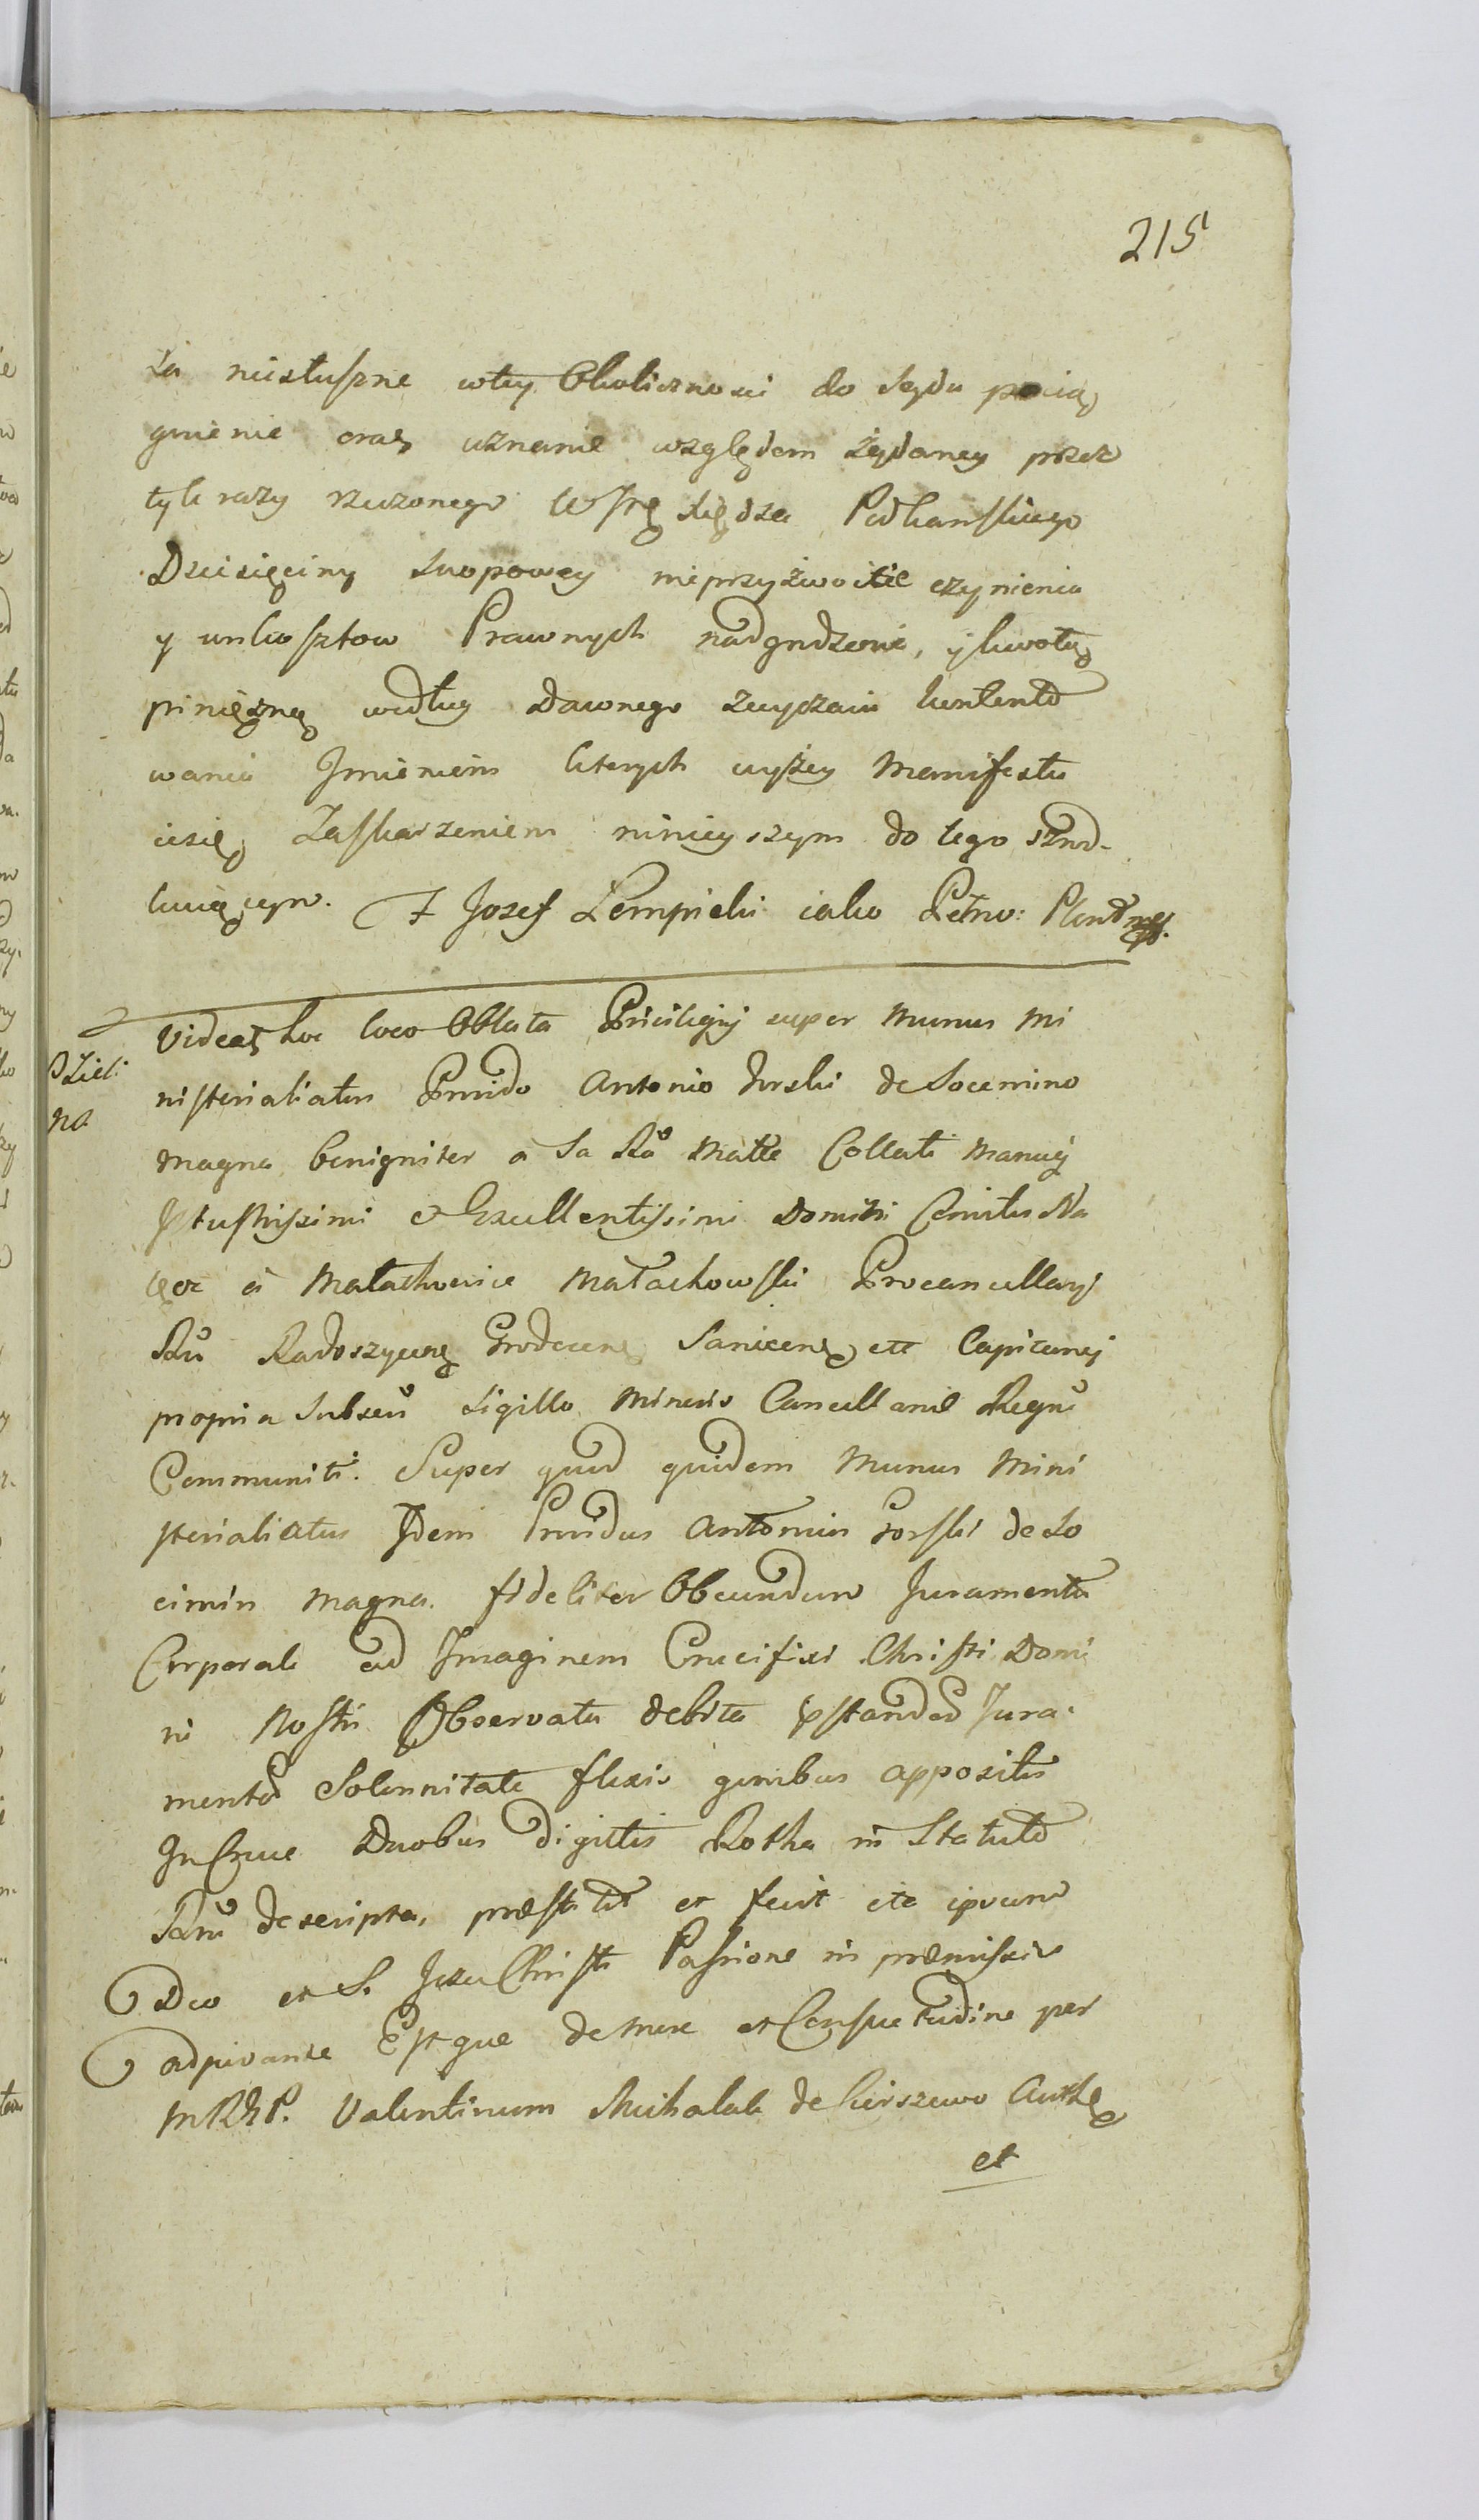 215
za niesłuszne wtey Okolicznosci do Sądu pocią
gnienie oraz uznanie względem żądaney przez
tyle razy rzeczonego Księdza Podkanskiego
Dziesięciny snopowey nieprzyzwoitie czynienia
y unkosztow Prawnych nadgrodzenie, y kwotą
pinięzną według dawnego zwyczaiu kontento
wania Imieniem ktorych wyżey Manifestu
iesię Zaskarzeniem ninieyszym do tego
Jozef Łempicki iako
Videat hoc loco Oblata Privilegij super Munus Mi
Dzieli
na
nisterialiatus Provido Antonio Gorski de Socimino
magna benigniter a Sa Ra Matte Collati manuq
Illustrissimi et Excellentissimi Domini Comitis Na
łęcz a Małachowice Małachowski Procancellarij
Rni Radoszycen Grodecen Sanicen ett Capitanej
propria Subscri Sigillo Minoris Cancellariae Regni
Communiti. Super quod quidem Munus Mini
sterialiatus Idem Providus Antonius Gorski de So
cimin magna. fideliter Obeundum Juramentu
Corporale ad Imaginem Crucifixi Christi Domi
ni Nostri Observata debita pstandod Jura
mentod Solennitate flexis genibus appositis
In Cruce Duobus digittis Rotha in Statuto
Rni descripta, praestitit et fecit ita ipsum
Deo et S. Jesu Christi Passione in praemissis
adjuvante Estque de more et Consuetudine per
Valentinum Michalak de
et